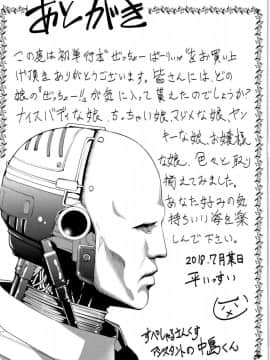 あとがき
この度は初単行本"ぜっちょーぱーりぃ"をお買い上げ
頂きありがとうございます。皆さんには、どの
娘の『ぜっちょー!!』が気に入って貰えたのでしょうか?
ナイスバディな娘、ちっちゃい娘、マジメな娘、ヤン
キーな娘、お嬢様
な娘、色々と取り
揃えてみました。
あなた好みの気
持ちいい姿を楽
しんで下さい。
2018.7月某日
平いっすい
すぺしゃるさんくす
アシスタントの中島くん